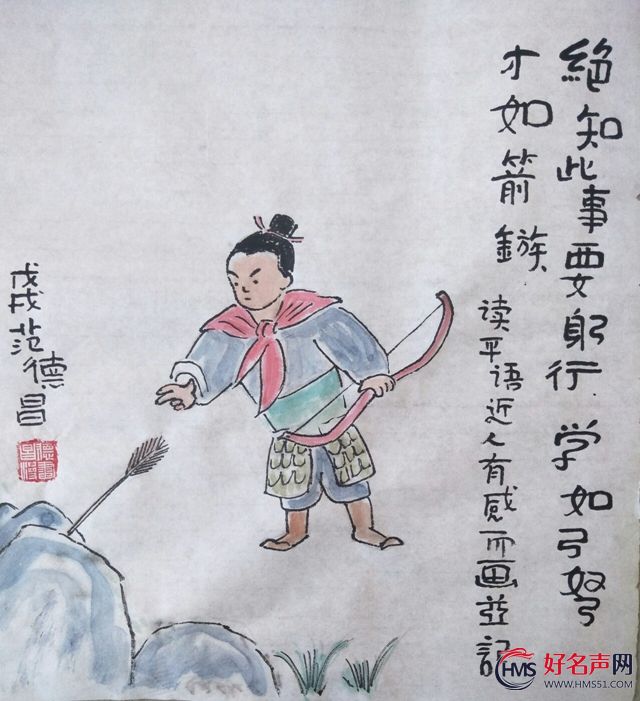 絕知此事要躬行 学如弓弩
才如箭鏃
读平语近人有感而画並記
戊戌范德昌
HMS 好名声网
WWW.HMS51.COM